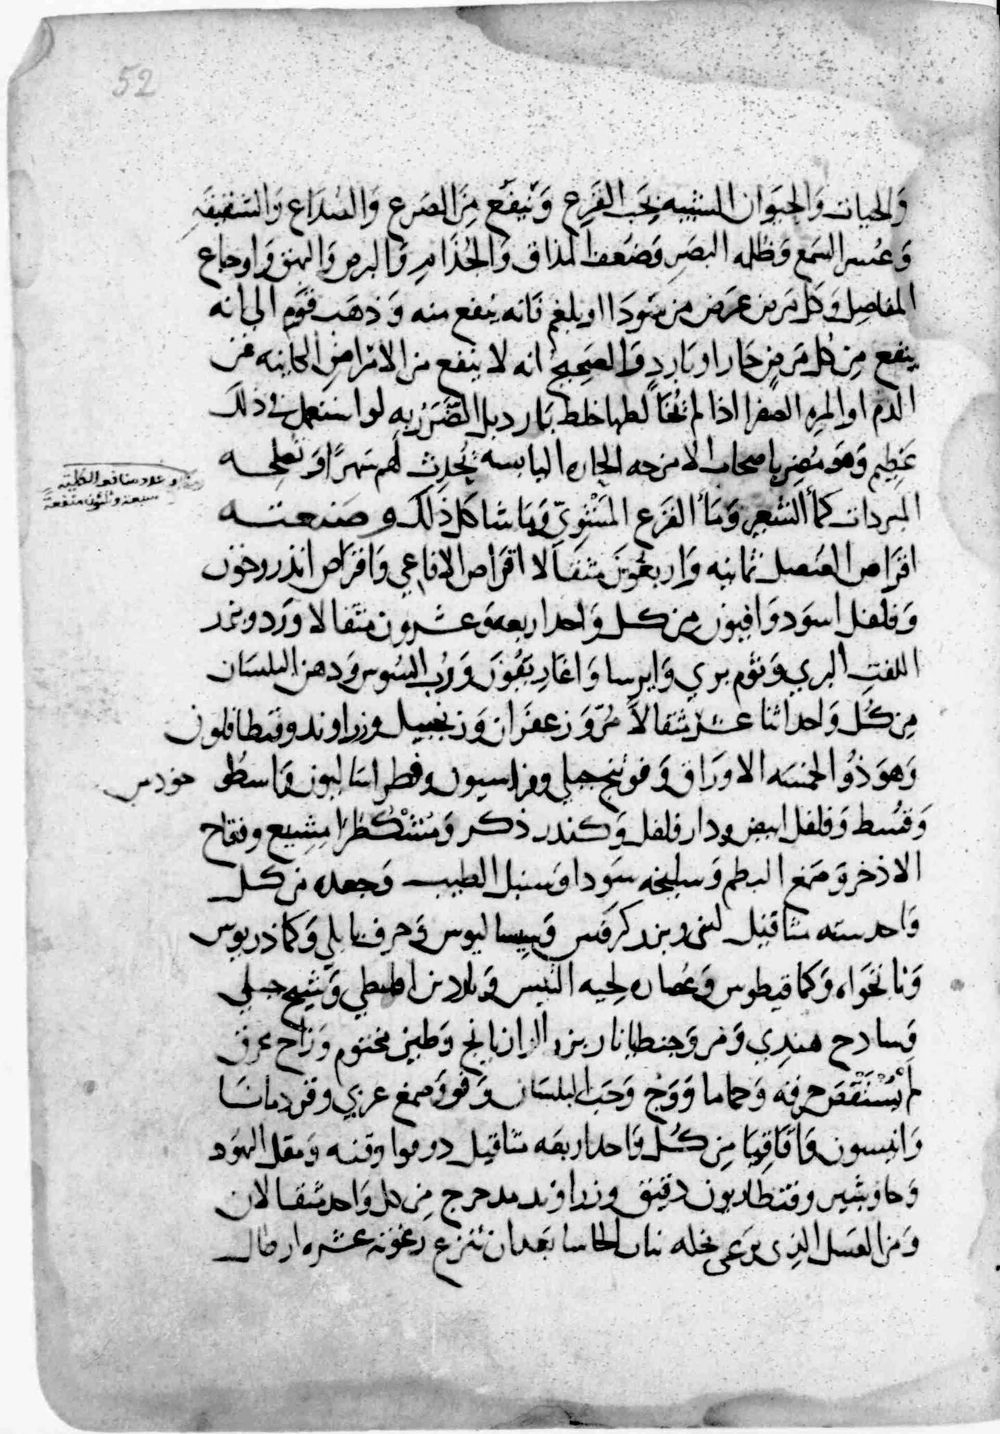 52
والحيات والحيوان الشبيه بحب القرع وَينفع مِن الصَرع وَالصُداع وَالشقيقه
وَعُسر السمع وَظلمه البصَرِ وَضعف المذاق وَالجُذَام وَالبرص وَالبهق وَاوجاع
المفاصِل وَكل مَرض عَرض من سَودَا او بلغم فَانه ينفع منه وَذهَب قوَم الى انه
ينفع مِن كُل مَرضٍ حَار او بَاردٍ وَالصَحِيح انه لا ينفع من الامْراض الكاينه من
الدم او المِره الصفرا اذا لم يخالطها خلط بَارد بل الضَرَر به لو استعمل في ذلك
عَظِيم وَهوَ مُضِر باصحاب الامزجه الحاره اليابسه يُحدِث لَهم سَهرًا وَتصلحه
المبردات كمآ الشعِير وَمَآ القَرع المَشْوِيّ وَمَا شاكل ذَلك وصَنعته
اقرَاص العُنصل ثمانيه وَاربعُون مثقالا اقرَاص الافاعي وَاقرَاص اندروخون
وَفلفل اسوَد وَافيون مِن كل وَاحد اربعه وَعشرون مثقالا وَرد وبزر
اللفت البري وَثوم بري وَايرسا وَاغاريقُون وَرُب السُوس وَدهن البلسَان
مِن كُل وَاحد اثنا عشر مثقالا مُرّ وَزعفرَان وَزنجبيل وزراوند وقنطافلون
وَهوَ ذُو الخمسَه الاورَاق وَفوتنج جبلي وفراسيون وفطراساليون وَاسطوخودس
وَقُسط وَفلفل ابيض ودار فلفل وَكندر ذكر وَمُشْكُطرَامِشِيع وفقاح
الاذخر وَصَمغ البطم وَسليخه سَودا وَسنبل الطيب وَجعده من كل
وَاحد سته مثاقيل لبنى وبزر كرَفس وَسيساليوس وَحرف بابلي وَكماذريوس
وَنانخواه وَكمافيطوس وَعُصاره لحيه التيس وَناردين اقليطي وَشيح جبلي
وَسادج هندِي وَمر وَجنطيانا وبزر الرازيانج وَطين مختوم وَزاج محرق
لم يُسْتَقْصَ حرقه وَحماما وَوَج وَحَب البلسَان وَفو وَصمغ عربي وقردمانَا
وَانيسون وَاقَاقِيَا مِن كُل وَاحد اربعَه مثاقيل دوقوا وقنه وَمقل اليهود
وَجاوشير وقنطاريون دقيق وزراوند مدحرج مِن كل وَاحد مثقالان
وَمن العَسل الذِي يرَعى نحله نبات الحاشا بَعد ان تنزع رغوَته عشره ارطال
وعدد منافعه الكلية
سبعة وثلثون منفعة